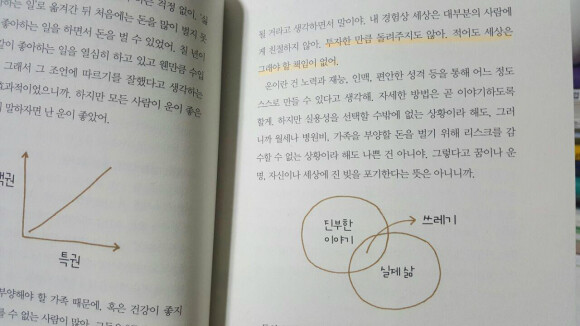 걱정 없이, '싫
하는 일'로 옮겨간 뒤 처음에는 돈을 많이 벌지 못
좋아하는 일을 하면서 돈을 벌 수 있었어. 칠 년이
같이 좋아하는 일을 열심히 하고 있고 웬만큼 수입
그래서 그 조언에 따르기를 잘했다고 생각하는
효과적이었으니까. 하지만 모든 사람이 운이 좋은
말하자면 난 운이 좋았어.
특권
부양해야 할 가족 때문에, 혹은 건강이 좋지
없는 사람이 많아.
될 거라고 생각하면서 말이야. 내 경험상 세상은 대부분의 사람에
게 친절하지 않아. 투자한 만큼 돌려주지도 않아. 적어도 세상은
그래야 할 책임이 없어.
운이란 건 노력과 재능, 인맥, 편안한 성격 등을 통해 어느 정도
스스로 만들 수 있다고 생각해. 자세한 방법은 곧 이야기하도록
할게. 하지만 실용성을 선택할 수밖에 없는 상황이라 해도, 그러
니까 월세나 병원비, 가족을 부양할 돈을 벌기 위해 리스크를 감
수할 수 없는 상황이라 해도 나쁜 건 아니야. 그렇다고 꿈이나 운
명, 자신이나 세상에 진 빚을 포기한다는 뜻은 아니니까.
진부한
이야기
쓰레기
실제 삶